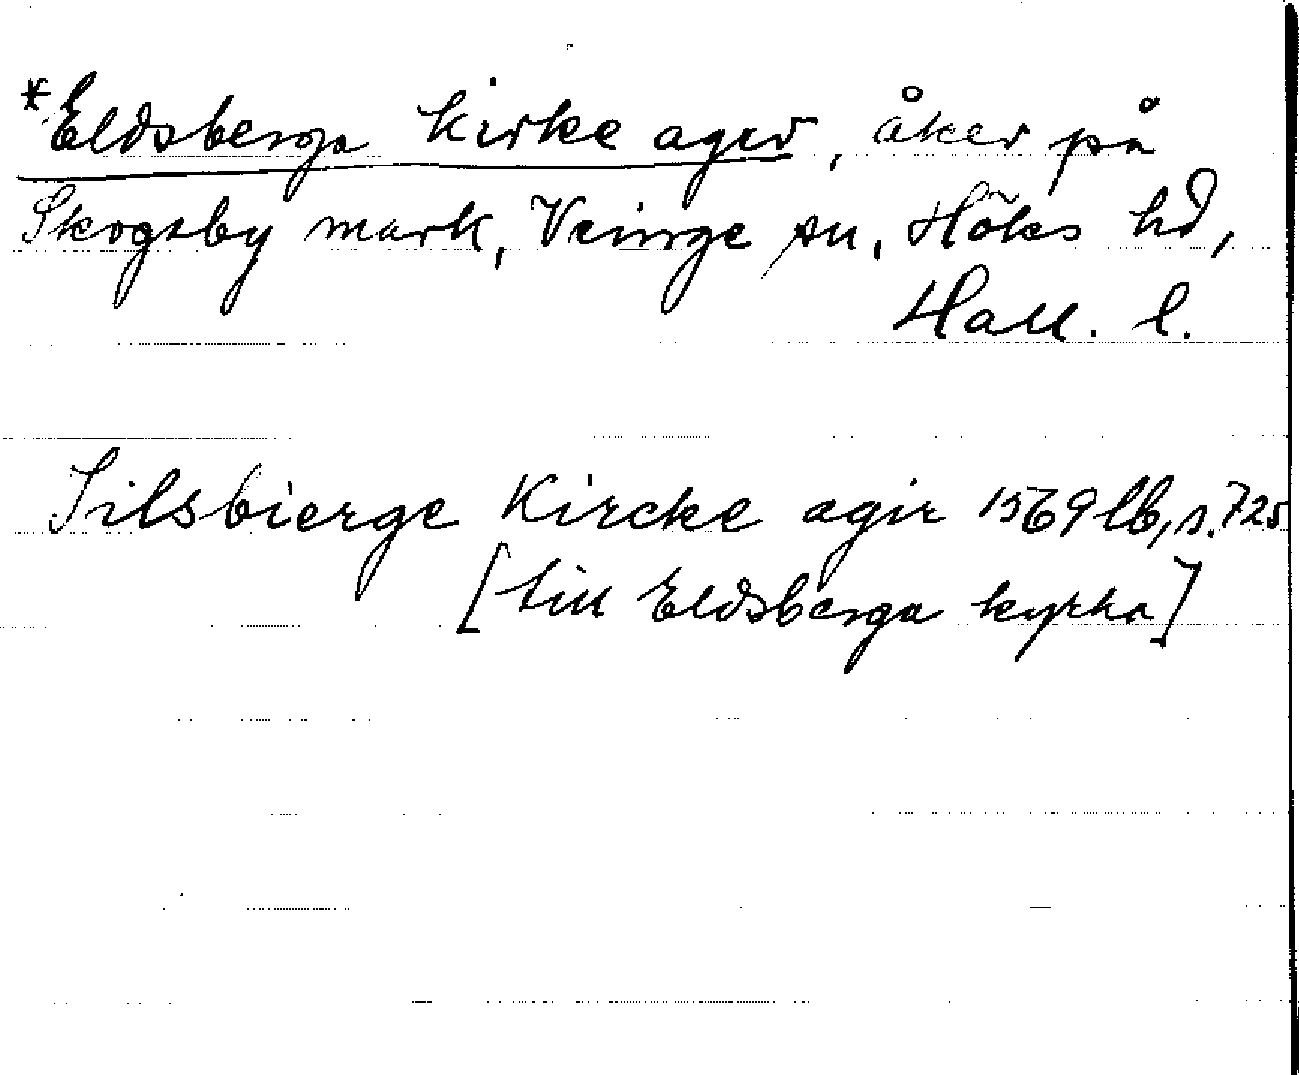 *Eldsberga Kirke ager, åker på
Skogsby mark, Veinge sn, Höks hd,
Hall. l.
Silsbierge Kircke agir 1569 lb, s. 725
[till Eldsberga kyrka]